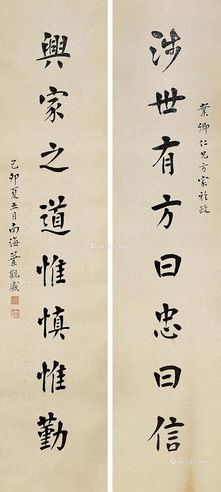 葉卿仁兄方家雅政
涉世有方曰忠曰信
興家之道惟慎惟勤
己卯夏五月南海葉觀盛